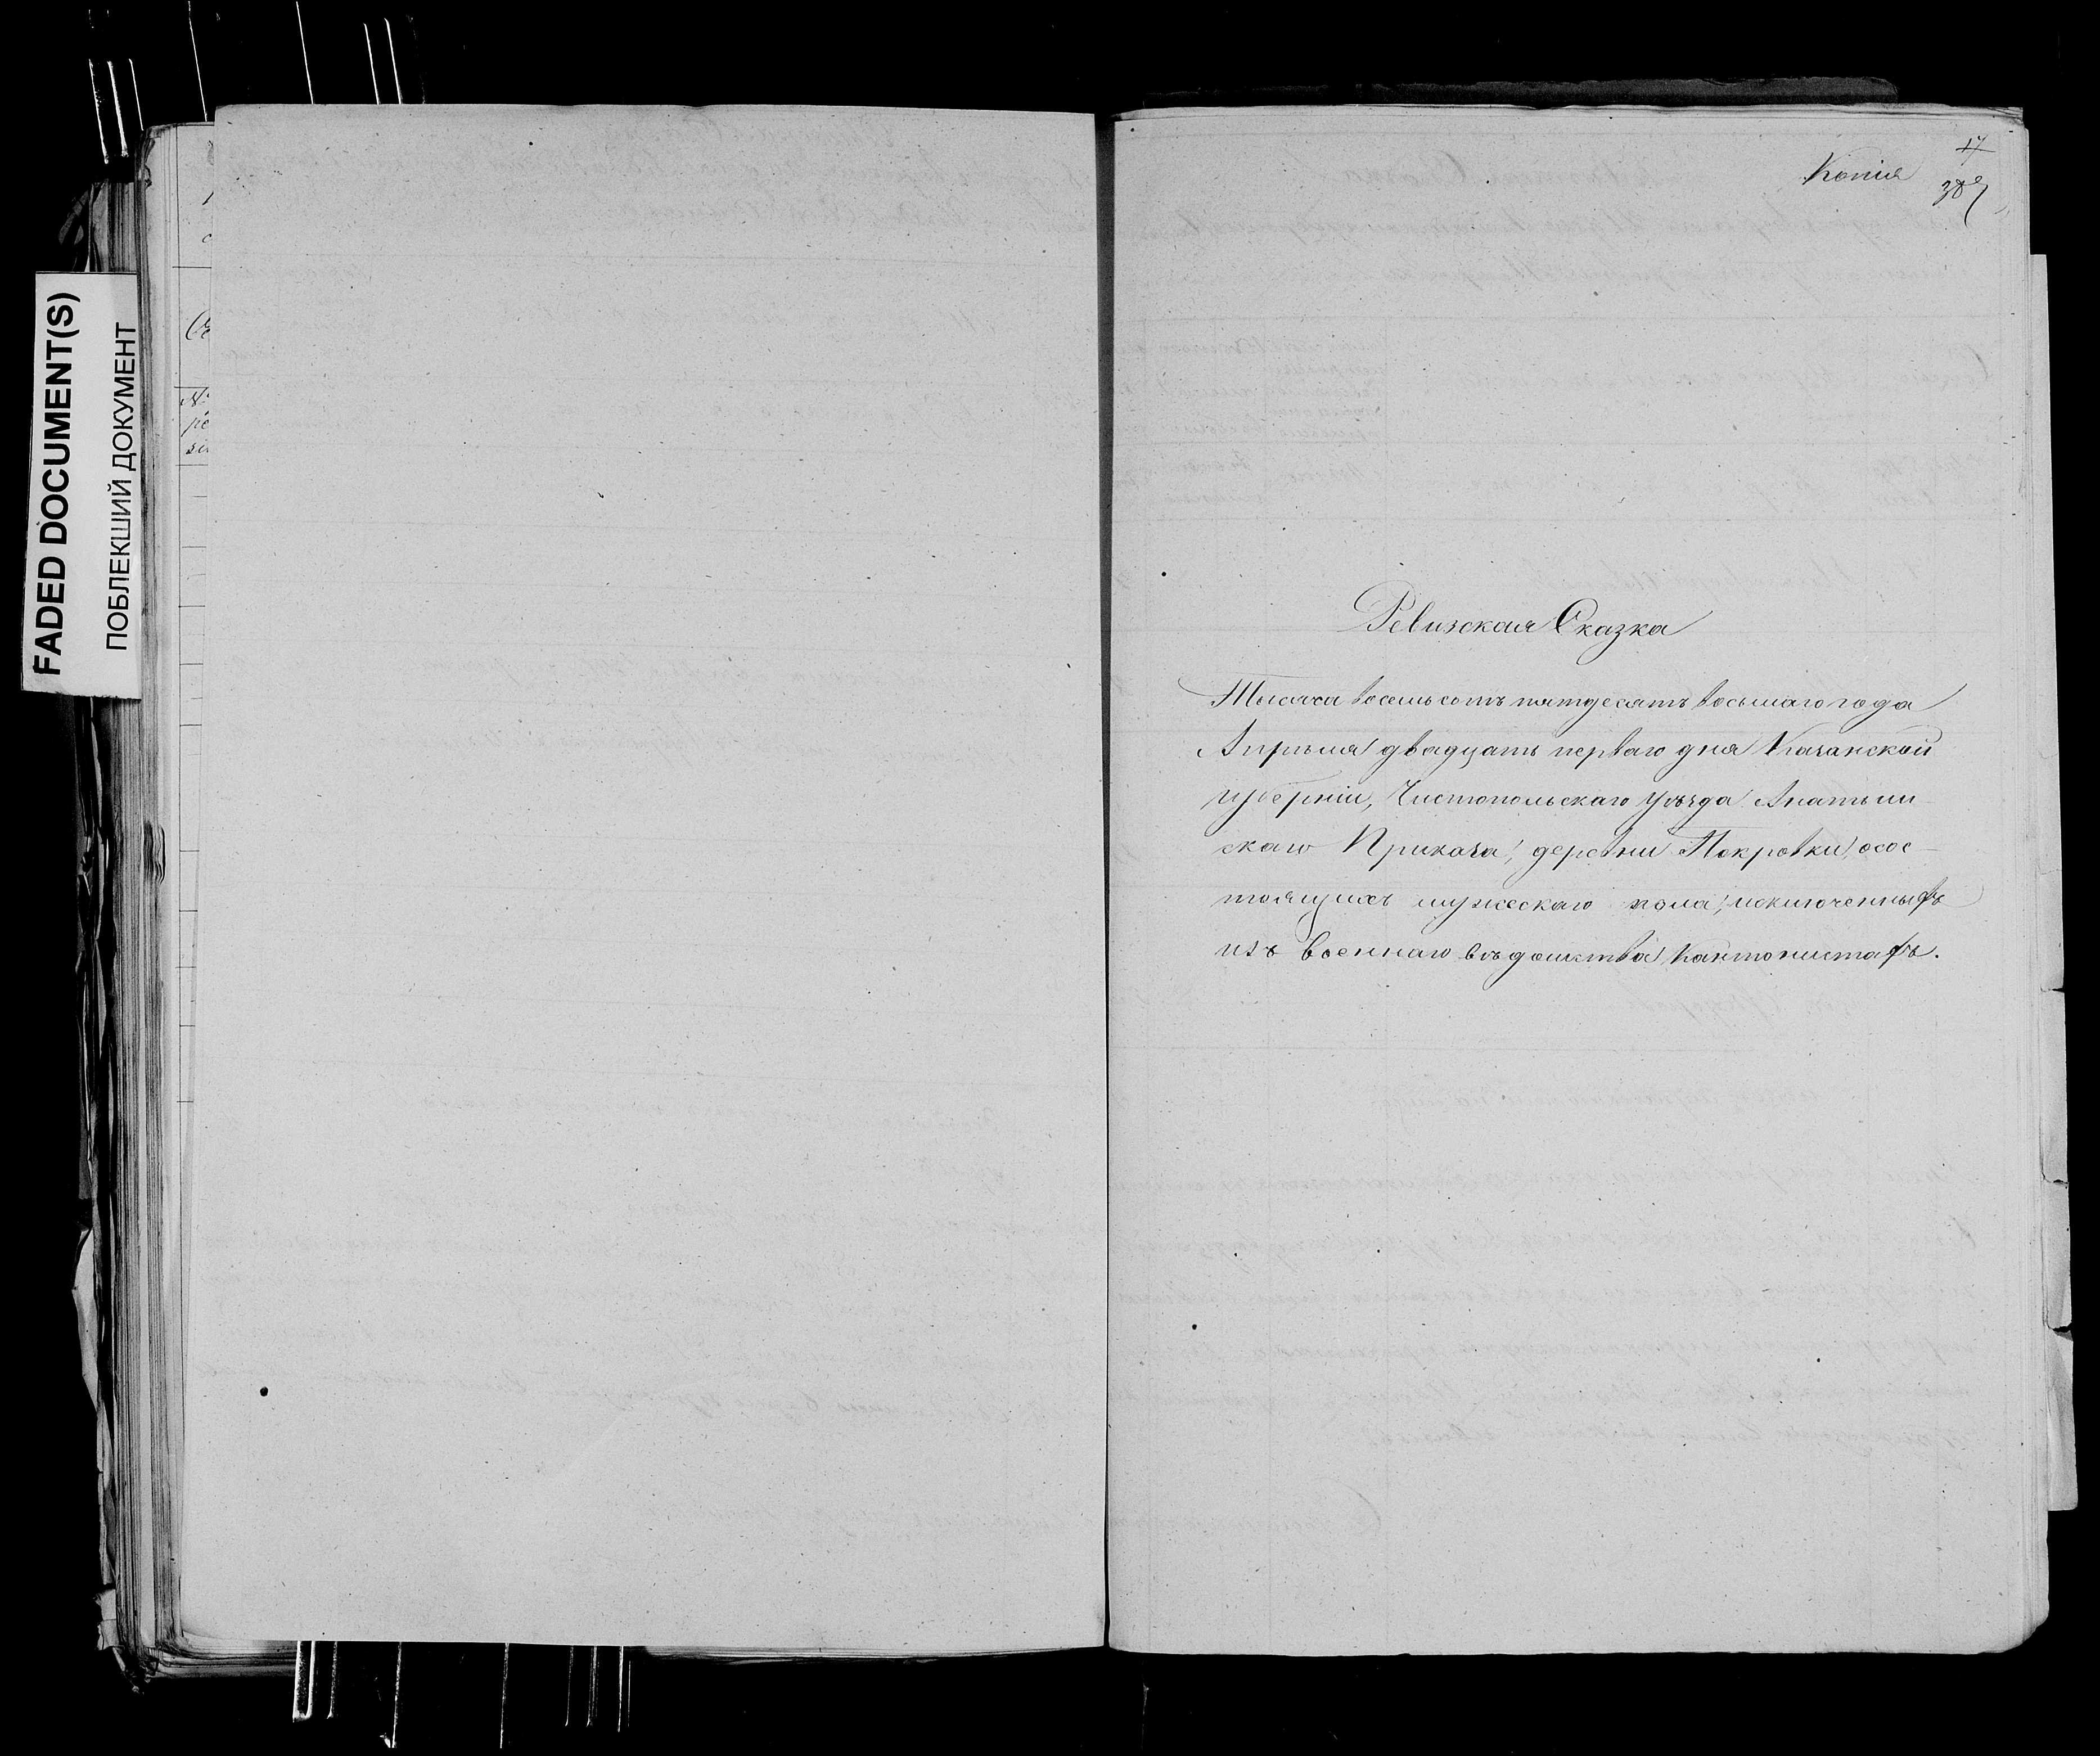 FADED DOCUMENT(S)
ПОБЛЕКШИЙ ДОКУМЕНТ
17
Копія
Ревизская Сказка
Тысяча восемьсотъ пятдесятъ восьмаго года
Апрѣля двадцать перваго дня Казанской
губерніи, Чистопольскаго Уѣзда
скаго Приказа, деревни Покровки, осос-
тоящихъ мужескаго пола, исключенныхъ
изъ военнаго вѣдомства Кантонистахъ.